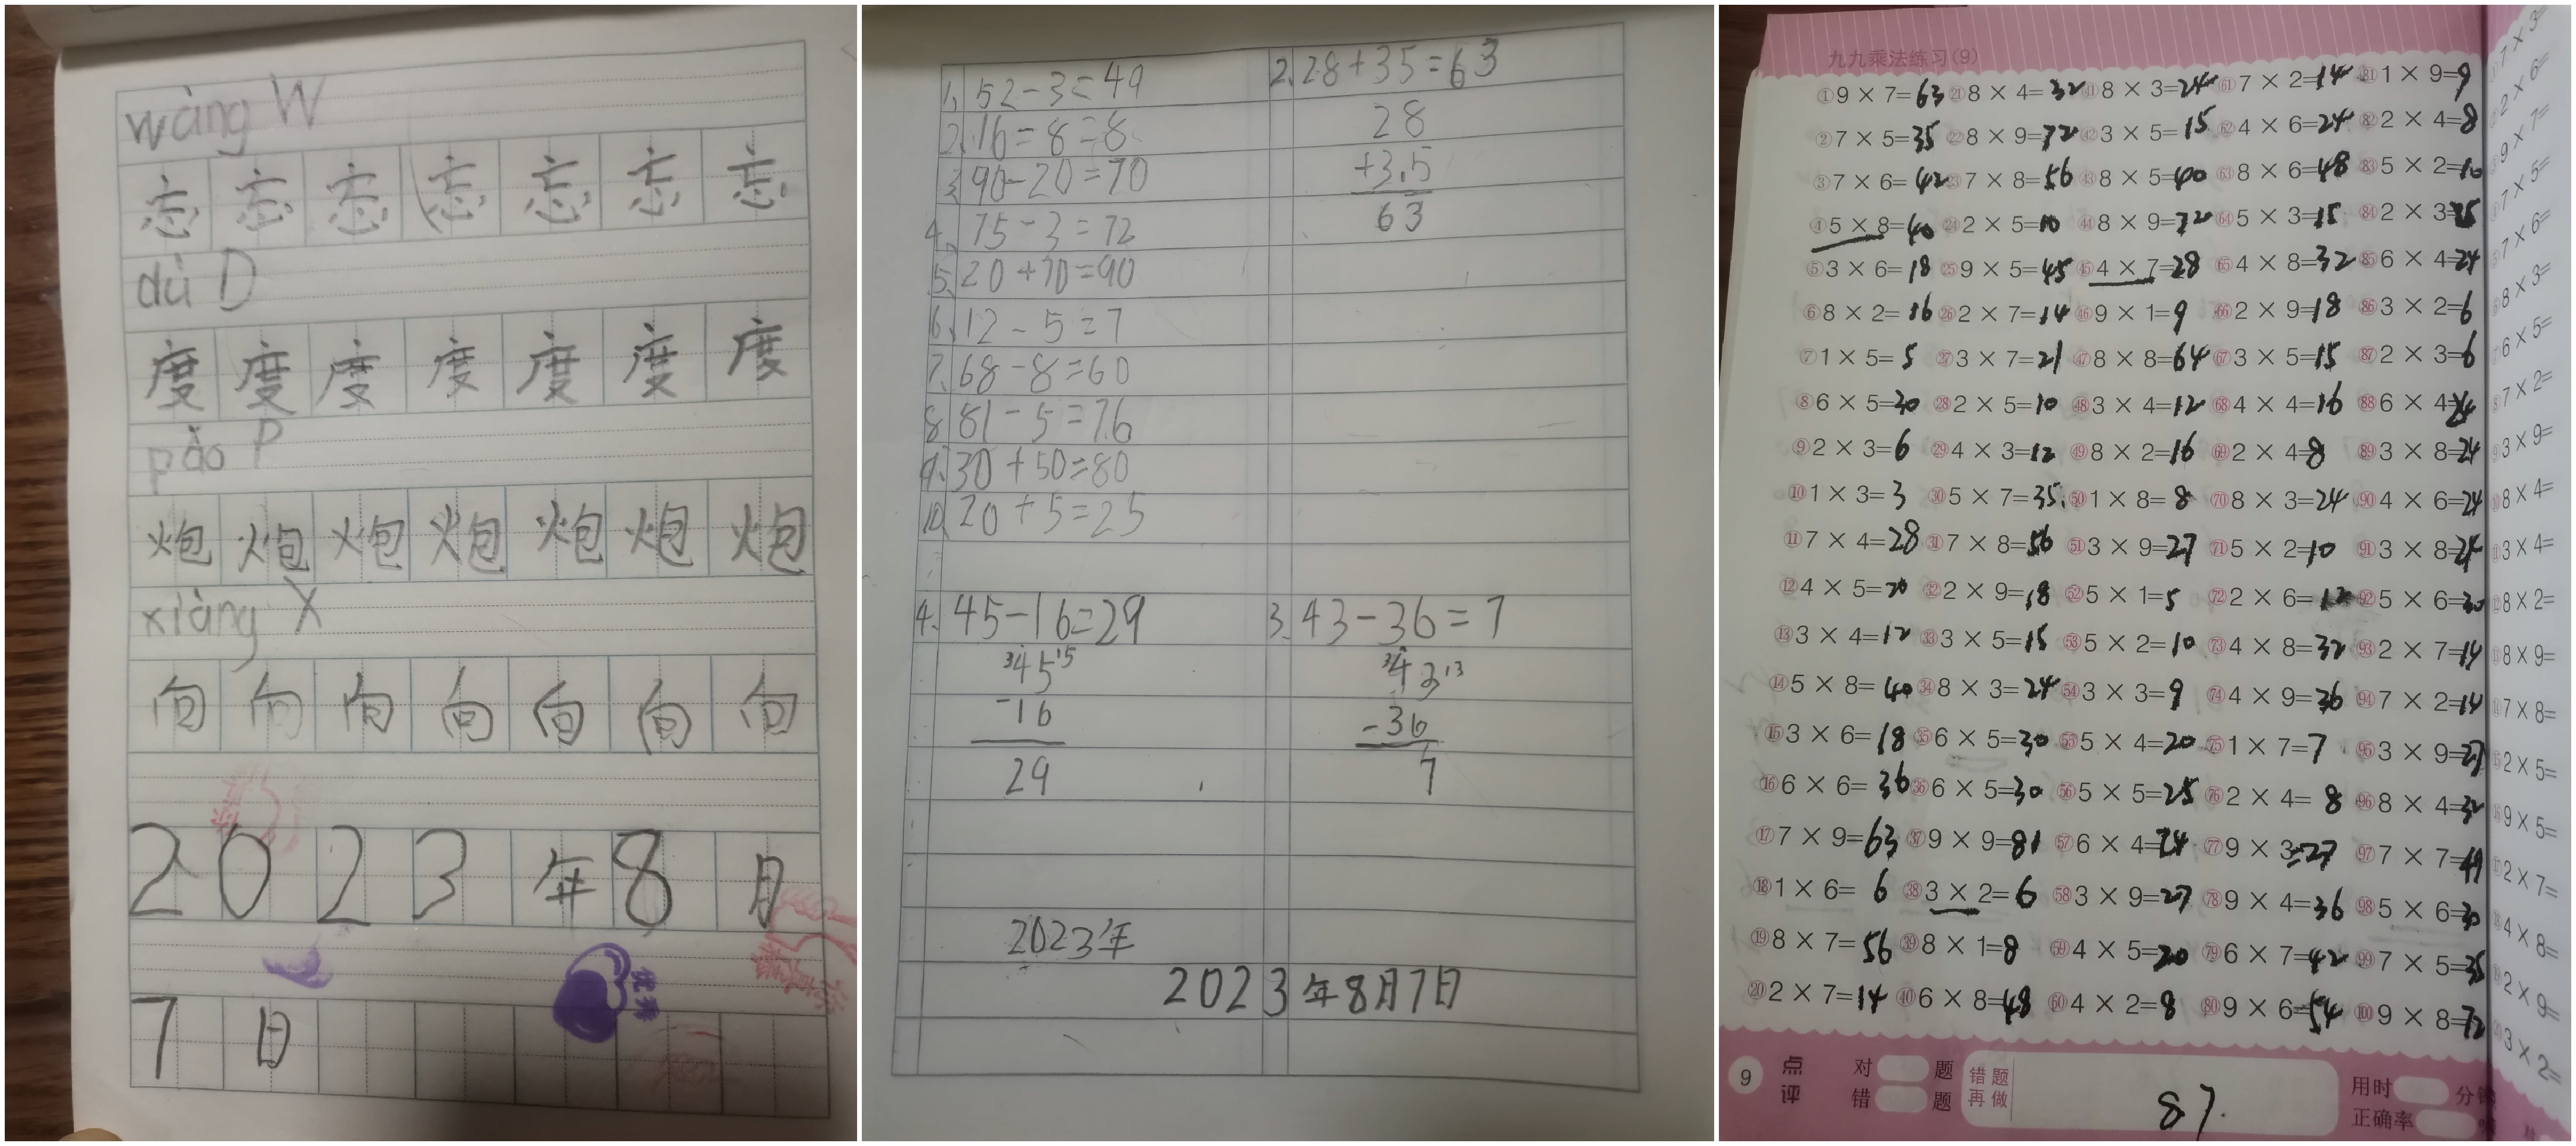 wàng W
忘 忘 忘 忘 忘 忘 忘
dù D
度 度 度 度 度 度 度
pào P
炮 炮 炮 炮 炮 炮 炮
xiàng X
向 向 向 向 向 向 向
2 0 2 3 年 8 月
7 日
优秀
1. 52-3=49
2. 16=8=8
3. 90-20=70
4. 75-3=72
5. 20+70=90
6. 12-5=7
7. 68-8=60
8. 81-5=76
9. 30+50=80
10. 20+5=25
2. 28+35=63
28
+3.5
63
4. 45-16=29
34515
-16
29
3. 43-36=7
34313
-36
7
2023年
2023年8月7日
九九乘法练习(9)
①9×7=63 ㉑8×4=32 ㊶8×3=24 61 7×2=14 81 1×9=9
②7×5=35 ㉒8×9=72 ㊷3×5=15 62 4×6=24 82 2×4=8
③7×6=42 ㉓7×8=56 ㊸8×5=40 63 8×6=48 83 5×2=10
④5×8=40 ㉔2×5=10 ㊹8×9=72 64 5×3=15 84 2×3=
⑤3×6=18 ㉕9×5=45 ㊺4×7=28 65 4×8=32 85 6×4=24
⑥8×2=16 ㉖2×7=14 ㊻9×1=9 66 2×9=18 86 3×2=6
⑦1×5=5 ㉗3×7=21 ㊼8×8=64 67 3×5=15 87 2×3=6
⑧6×5=30 ㉘2×5=10 ㊽3×4=12 68 4×4=16 88 6×4=
⑨2×3=6 ㉙4×3=12 ㊾8×2=16 69 2×4=8 89 3×8=24
⑩1×3=3 ㉚5×7=35 ㊿1×8=8 70 8×3=24 90 4×6=24
⑪7×4=28 ㉛7×8=56 51 3×9=27 71 5×2=10 91 3×8=24
⑫4×5=20 ㉜2×9=18 52 5×1=5 72 2×6=12 92 5×6=30
⑬3×4=12 ㉝3×5=15 53 5×2=10 73 4×8=32 93 2×7=14
⑭5×8=40 ㉞8×3=24 54 3×3=9 74 4×9=36 94 7×2=14
⑮3×6=18 ㉟6×5=30 55 5×4=20 75 1×7=7 95 3×9=27
⑯6×6=36 ㊱6×5=30 56 5×5=25 76 2×4=8 96 8×4=32
⑰7×9=63 ㊲9×9=81 57 6×4=24 77 9×3=27 97 7×7=49
⑱1×6=6 ㊳3×2=6 58 3×9=27 78 9×4=36 98 5×6=30
⑲8×7=56 ㊴8×1=8 59 4×5=20 79 6×7=42 99 7×5=35
⑳2×7=14 ㊵6×8=48 60 4×2=8 80 9×6=54 100 9×8=72
9 点评 对 题 错 题 错题再做 87. 用时 分钟 正确率
7×3=
2×6=
9×7=
7×5=
7×6=
8×3=
6×5=
7×2=
3×9=
8×4=
3×4=
8×2=
8×9=
7×8=
2×5=
9×5=
2×7=
4×8=
2×9=
3×2=